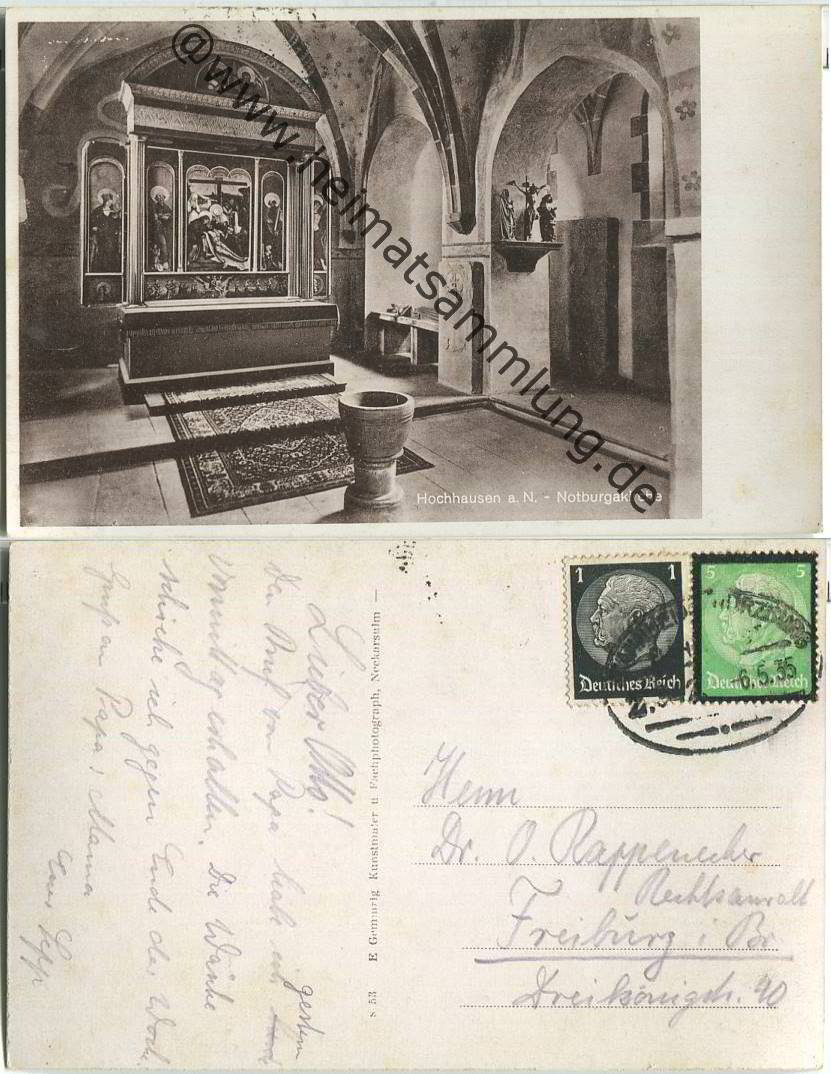 @www.heimatsammlung.de
Hochhausen a. N. - Notburgakirche
1 1
Deutsches Reich
5 5
Deutsches Reich
6.5.35
Lieber Otto!
den Brief von Papa habe ich gestern
Vormittag erhalten. Die Wäsche
schicke ich gegen Ende der Woche.
Gruß an Papa & Mama
Euer Sepp
s 53 E Gemmrig Kunstmaler u Fachphotograph, Neckarsulm —
Herrn
Dr. O. Rappenecker
Rechtsanwalt
Freiburg i. Br.
Dreikönigstr. 40